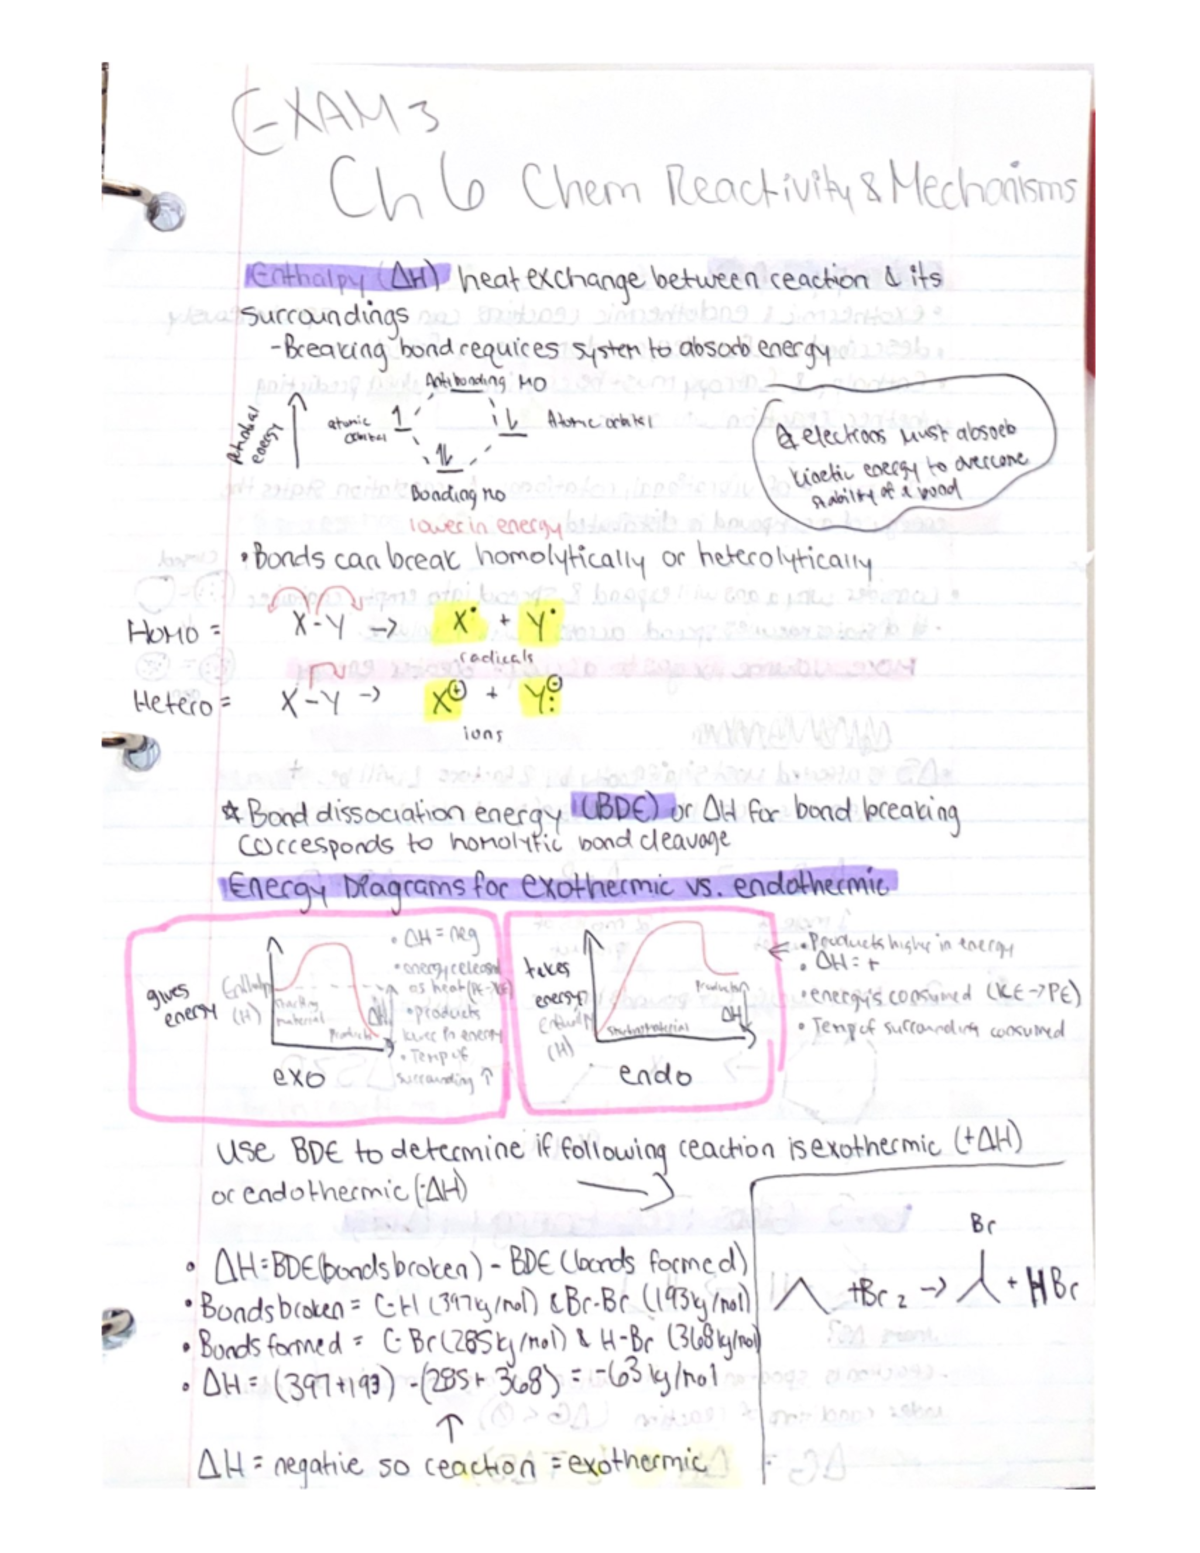 EXAM 3
Ch 6 Chem Reactivity & Mechanisms
Enthalpy (ΔH) heat exchange between reaction & its
surroundings
- Breaking bond requires system to absorb energy
Antibonding MO
potential energy
atomic orbital
1
1
Atomic orbital
1
Bonding MO
lower in energy
electrons must absorb
kinetic energy to overcome
stability of a bond
• Bonds can break homolytically or heterolytically
Homo = X-Y → X• + Y•
radicals
Hetero = X-Y → X⊕ + Y:⊖
ions
☆ Bond dissociation energy (BDE) or ΔH for bond breaking
corresponds to homolytic bond cleavage
Energy Diagrams for exothermic vs. endothermic
gives
energy
Enthalpy
(H)
starting
material
Products
ΔH
exo
• ΔH = neg
• energy released
as heat (PE→KE)
• products
lower in energy
• Temp of
surrounding ↑
takes
energy
Enthalpy
(H)
Starting material
Products
ΔH
endo
• Products higher in energy
• ΔH = +
• energy is consumed (KE→PE)
• Temp of surrounding consumed
use BDE to determine if following reaction is exothermic (+ΔH)
or endothermic (-ΔH)
• ΔH = BDE (bonds broken) - BDE (bonds formed)
• Bonds broken = C-H (397kj/mol) & Br-Br (193kj/mol)
• Bonds formed = C-Br (285kj/mol) & H-Br (368kj/mol)
• ΔH = (397+193) - (285+368) = -63 kj/mol
↑
ΔH = negative so reaction = exothermic
Br
+Br2 → + HBr